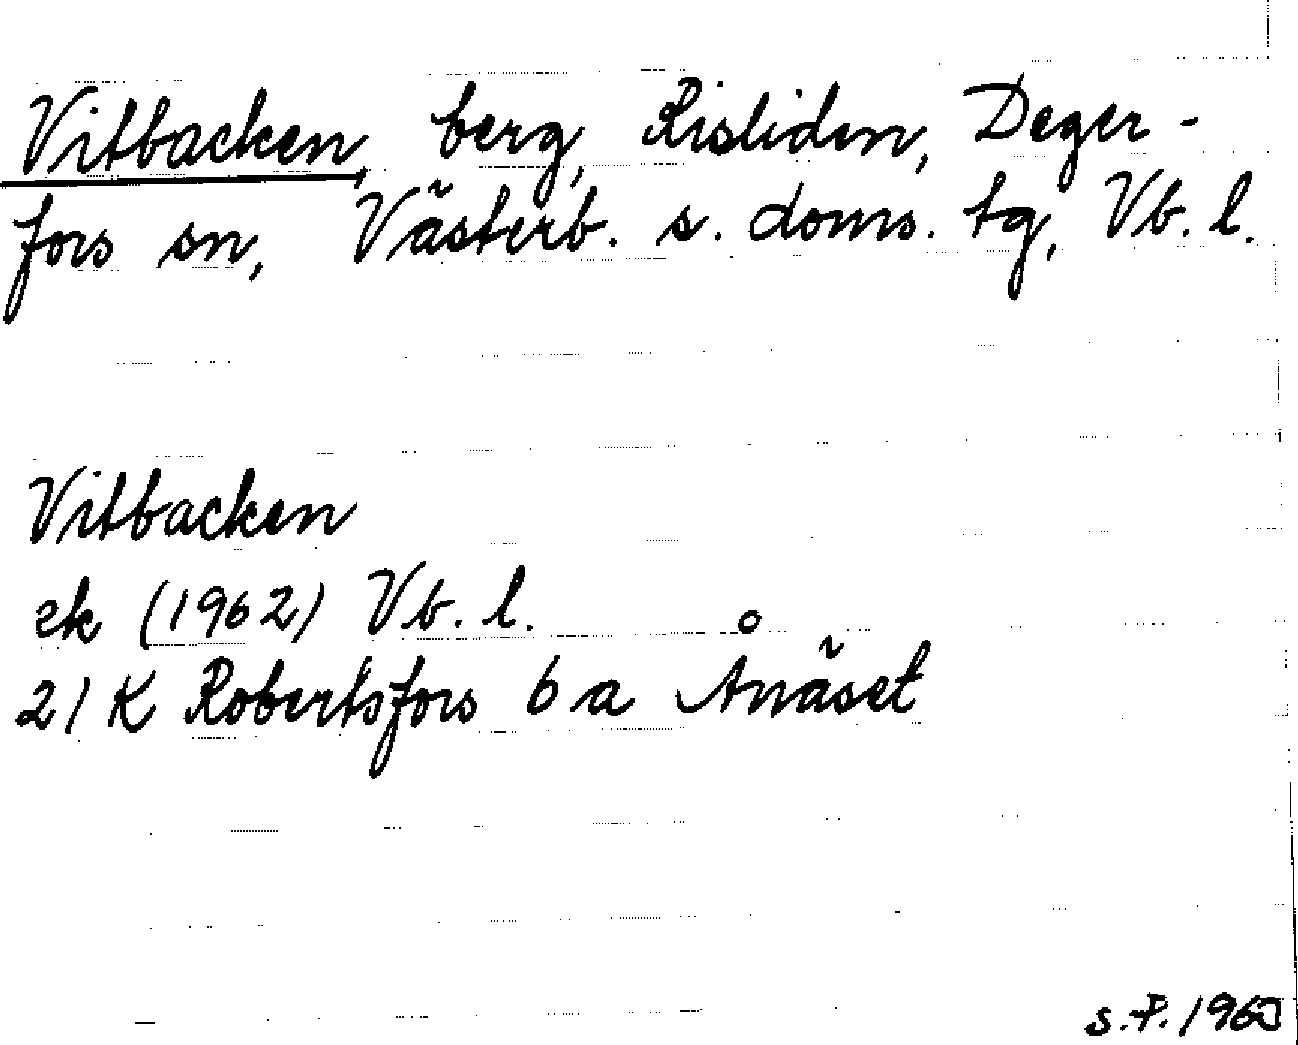 Vitbacken, berg, Risliden, Deger-
fors sn, Västerb. s. doms. tg, Vb. l.
Vitbacken
ek (1962) Vb. l.
21 K Robertsfors 6 a Ånäset
s.P. 1963